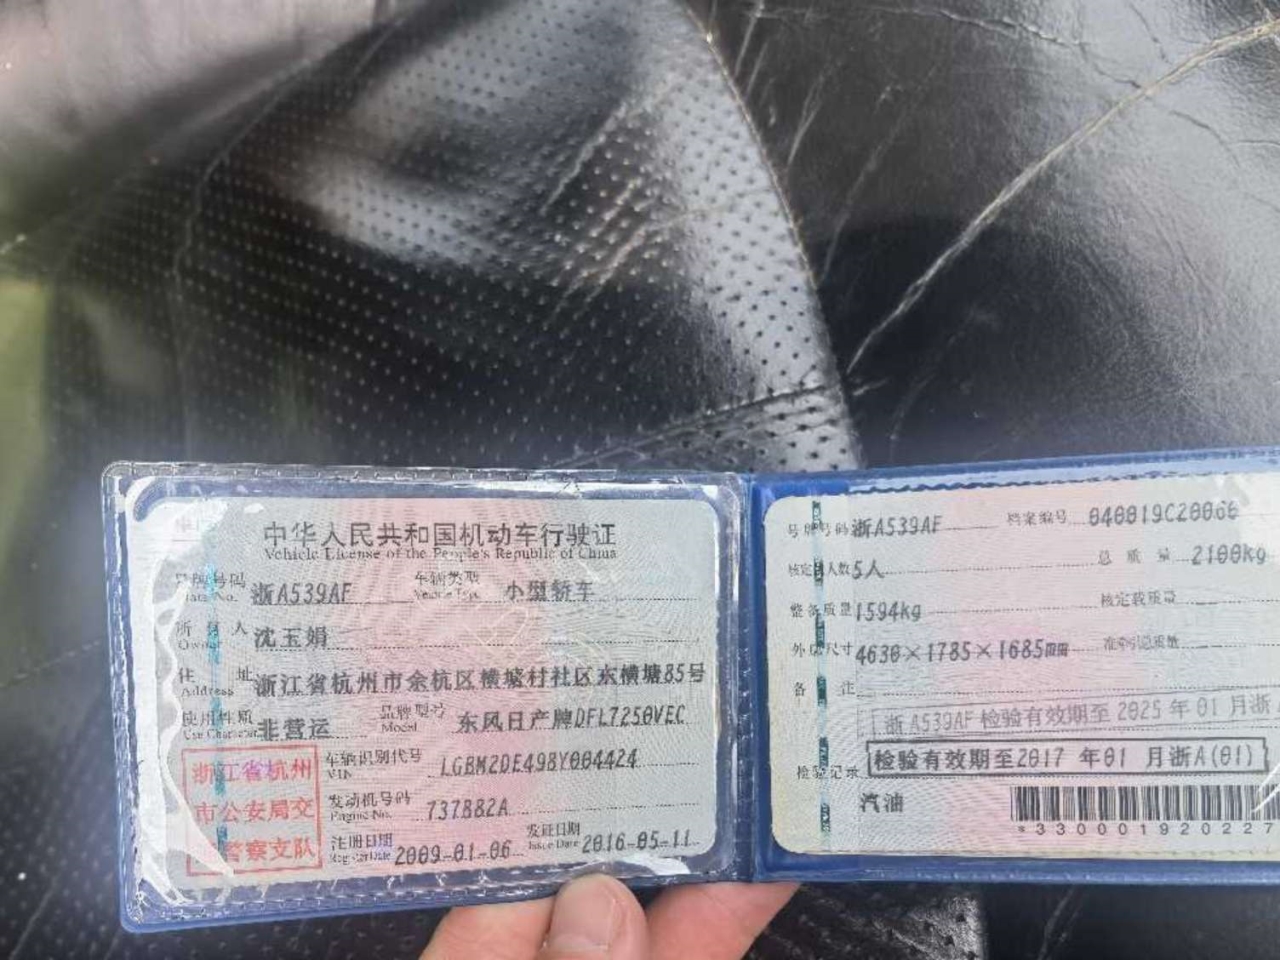 中华人民共和国机动车行驶证
Vehicle License of the People's Republic of China
号牌号码 浙A539AF 车辆类型 小型轿车
Plate No. Vehicle Type
所有人 沈玉娟
Owner
住址 浙江省杭州市余杭区横塘村社区东横塘85号
Address
使用性质 非营运 品牌型号 东风日产牌DFL7250VEC
Use Character Model
浙江省杭州
市公安局交
警察支队
车辆识别代号 LGBM2DE498Y004424
VIN
发动机号码 737882A
Engine No.
注册日期 2009-01-06 发证日期 2016-05-11
Register Date Issue Date
号牌号码 浙A539AF 档案编号
核定人数 5人 总质量 2100kg
整备质量 1594kg 核定载质量
外廓尺寸 4630×1785×1685mm 准牵引总质量
备注
浙A539AF 检验有效期至 2025年 01月浙
检验记录 检验有效期至2017 年01 月浙A(01)
汽油
*3300001920227